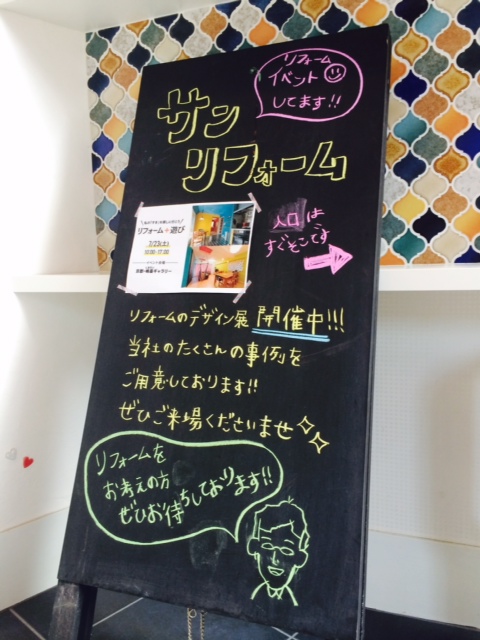 リフォーム
イベント
してます!!
サン
リフォーム
リフォーム+遊び
7/23(土)
10:00-17:00
入口は
すぐそこです
リフォームのデザイン展 開催中!!!
当社のたくさんの事例を
ご用意しております!!
ぜひご来場くださいませ
リフォームを
お考えの方
ぜひお待ちしております!!